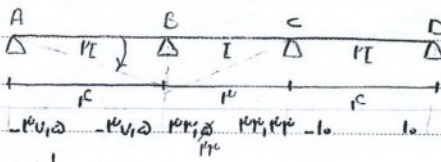 A B C D
۲I I ۲I
۴ ۳ ۴
-۳۷,۵ -۳۷,۵ ۳۳,۳۳ -۱۰ ۱۰